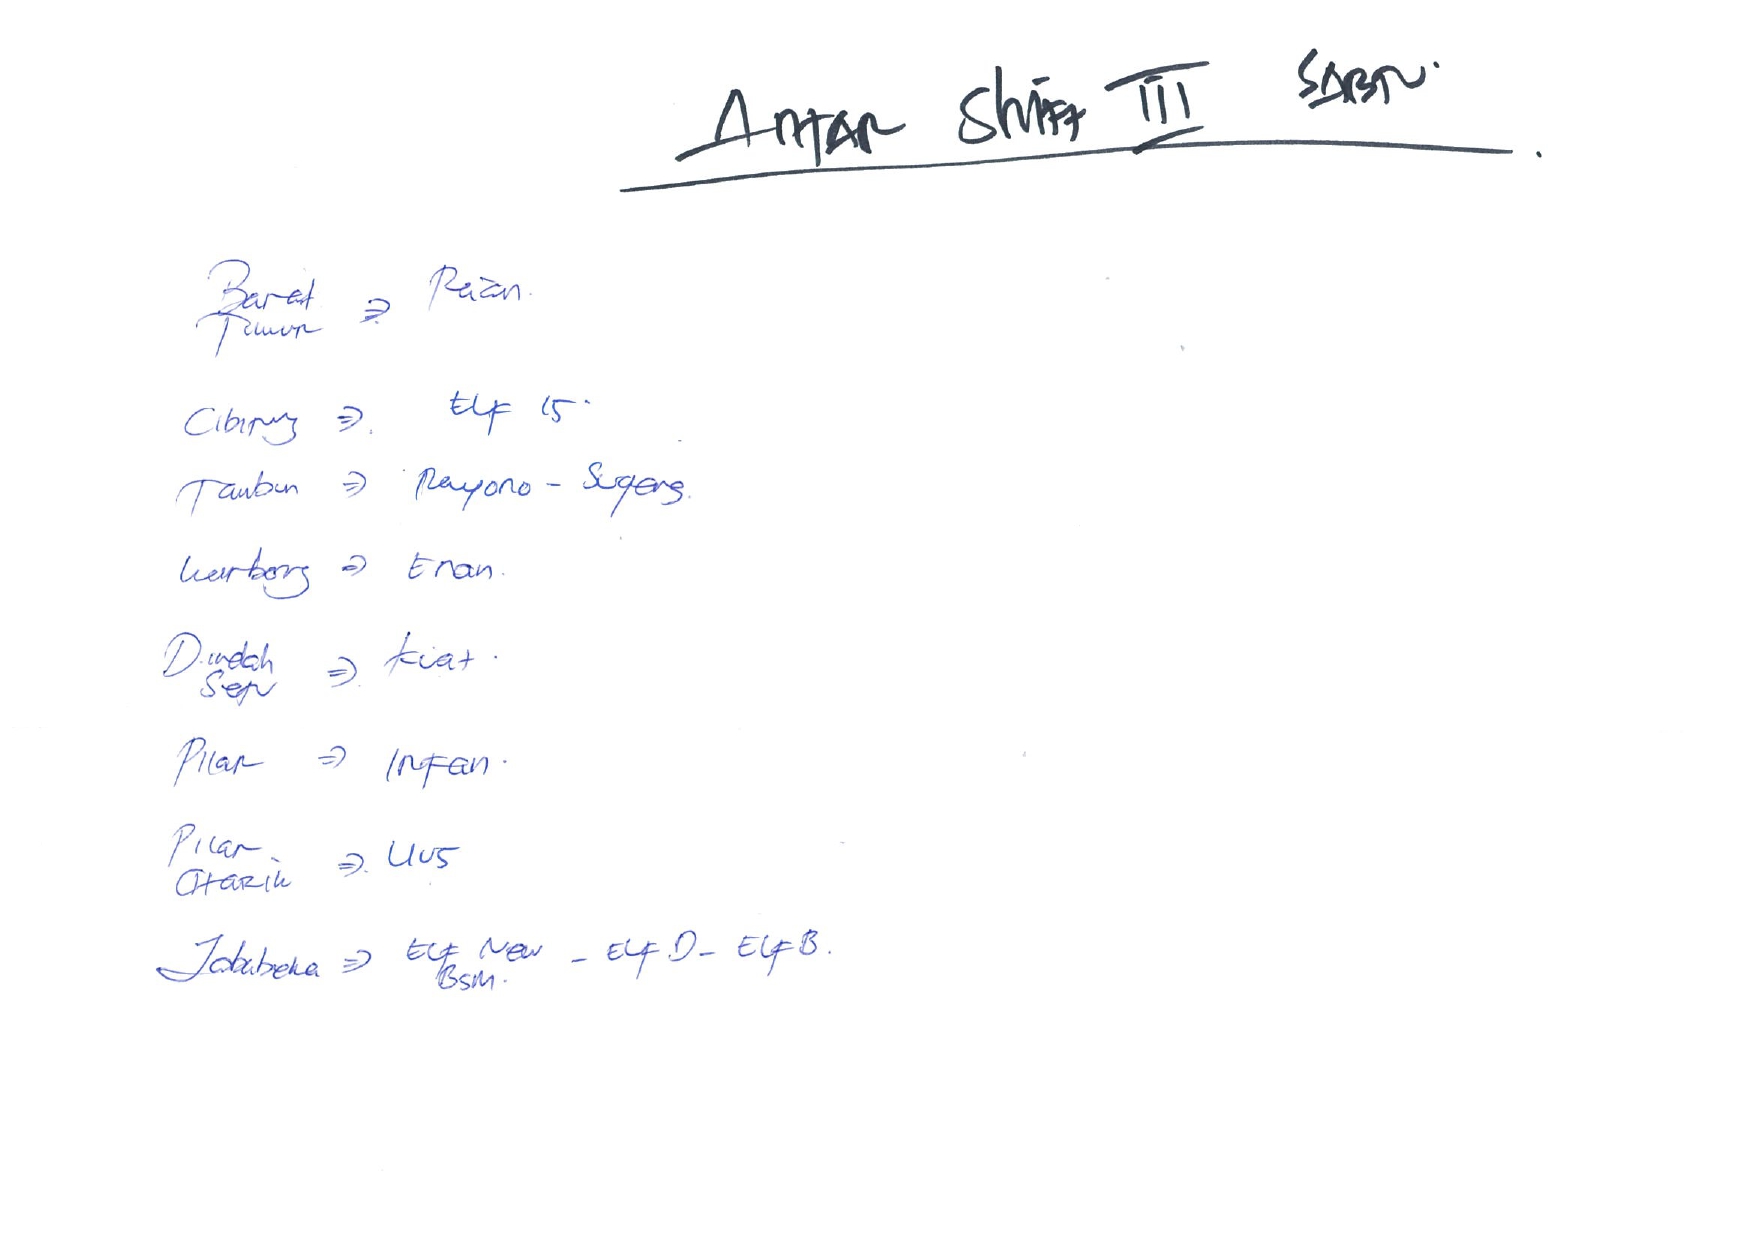 Antar Shift III SABTU.
Barat Timur ⇒ Raian.
Cibitung ⇒ ELF 15.
Tambun ⇒ Rayono - Sugeng.
Warbong ⇒ Enan.
D. indah Seru ⇒ Kiat.
Pilar ⇒ Irfan.
Pilar Citarik ⇒ UUS
Jababeka ⇒ ELF New Bsm. - ELF D - ELF B.